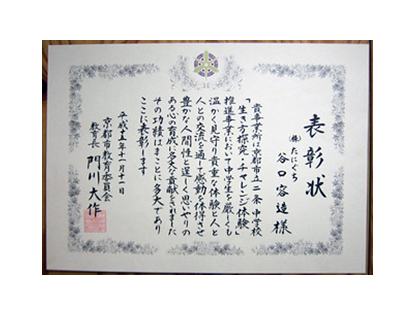 表彰状
(株)たにぐち
谷口容造様
貴事業所は京都市立二条中学校
「生き方探究・チャレンジ体験」
推進事業において中学生を厳しくも
温かく見守り貴重な体験と人と
人との交流を通して感動を体得させ
豊かな人間性と逞しく思いやりの
ある心の育成に多大な貢献をされました
その功績はまことに多大であり
ここに表彰します
平成十五年十一月十一日
京都市教育委員会
教育長 門川大作